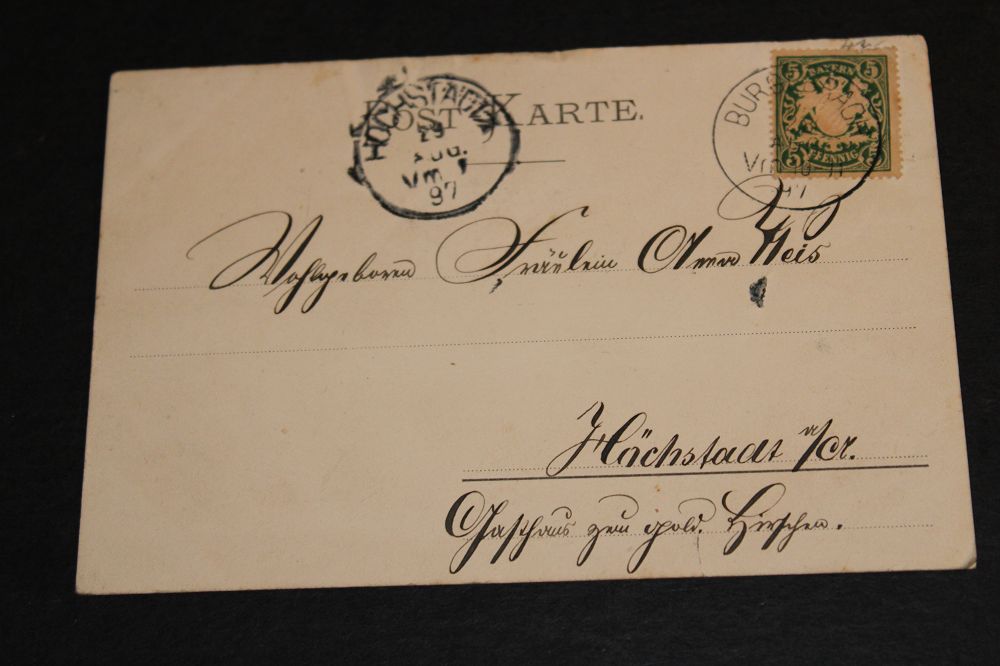 POST KARTE.
HÖCHSTADT
29
AUG.
Vm
97
5 BAYERN 5
5 PFENNIG 5
97
Wohlgeboren Fräulein Anna Weis
Höchstadt a/A.
Gasthaus zum gold. Hirschen.